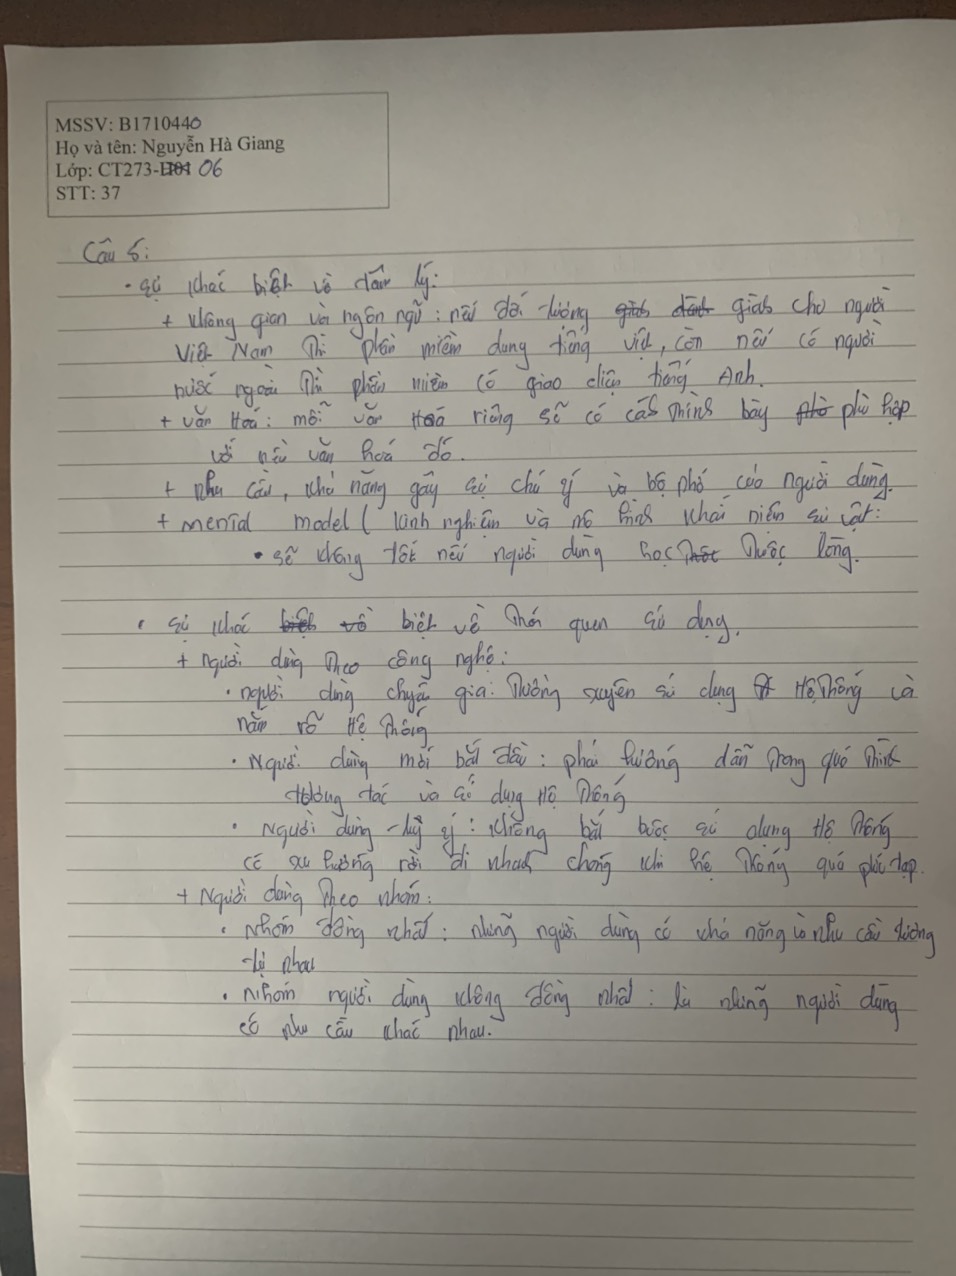 MSSV: B1710440
Họ và tên: Nguyễn Hà Giang
Lớp: CT273-H01 06
STT: 37
Câu 5:
• sự khác biệt về tâm lý:
+ không gian và ngôn ngữ: nếu đối tượng giành dành giành cho người
Việt Nam thì phần mềm dùng tiếng việt, còn nếu có người
nước ngoài thì phần mềm có giao diện tiếng Anh.
+ văn Hoá: mỗi văn Hoá riêng sẽ có cách trình bày phù hợp
với nền văn hoá đó.
+ nhu cầu, khả năng gây sự chú ý và bộ nhớ của người dùng.
+ mental model (kinh nghiệm và mô hình khái niệm sự vật:
• sẽ không tốt nếu người dùng học thuộc lòng.
• sự khác biệt về biệt về thói quen sử dụng.
+ người dùng theo công nghệ:
• người dùng chuyên gia: thường xuyên sử dụng Hệ thống và
nắm rõ Hệ thống
• Người dùng mới bắt đầu: phải hướng dẫn trong quá trình
tương tác và sử dụng Hệ thống
• Người dùng tuỳ ý: không bắt buộc sử dụng Hệ thống
có xu hướng rời đi nhanh chóng khi hệ thống quá phức tạp.
+ Người dùng theo nhóm:
• Nhóm đồng nhất: những người dùng có khả năng và nhu cầu tương
tự nhau
• Nhóm người dùng không đồng nhất: là những người dùng
có nhu cầu khác nhau.